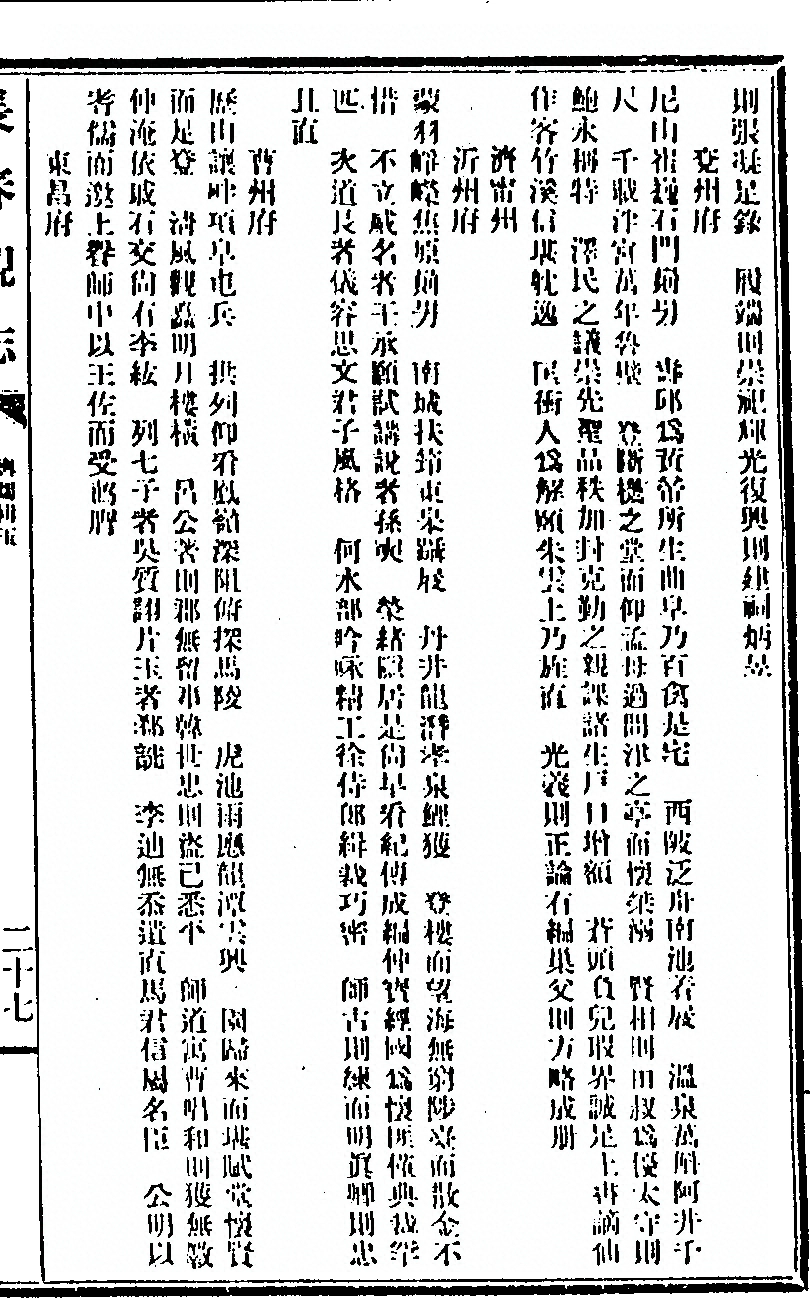 則張凝是錄　殷端則崇祀輝光復興則建祠炳景
兗州府
尼山崔巍石門峭切　壽邱為黃帝所生曲阜乃百禽是宅　西陂泛舟南池看展　溫泉萬斛阿井千
尺　千載泮宮萬年魯殿　登斷機之堂而仰孟母過問津之亭而懷桀溺　賢相則田叔為優太守則
鮑永稱特　澤民之議崇先聖品秩加封克勤之親課諸生戶口增額　蒼頭負兒瑕界誠是上書謫仙
作客竹溪信堪耽逸　匡衡人為解頤朱雲上乃旌直　光義則正論有綱巢父則方略成冊
濟甯州
沂州府
蒙羽崢嶸焦原峭勁　南城扶筇東泉躡屐　丹井龍潛孝泉鯉獲　登樓而望海無窮陟臺而散金不
惜　不立威名者王承願試講說者孫奭　榮緒隱居是尚阜看紀傳成編仲寶經國為懷匪僅典裁
匹　次道長者儀容思文君子風格　何水部吟咏精工徐侍郎緝裁巧密　師古則練而明真卿則忠
且直
曹州府
歷山讓畔項阜屯兵　拱列仰看鳳嶺深阻俯探馬陵　虎池雨應龍潭雲興　園歸來而堪賦堂懷賢
而足登　清風觀矗明月樓橫　呂公著則郡無留事韓世忠則盜已悉平　師道寓曹唱和則獲無數
仲淹依戚石交尚有李紘　列七子者吳質詡片玉者郤詵　李迪無忝遺直馬君信屬名臣　公明以
老儒而邀上聲師中以王佐而受
東昌府
二十七